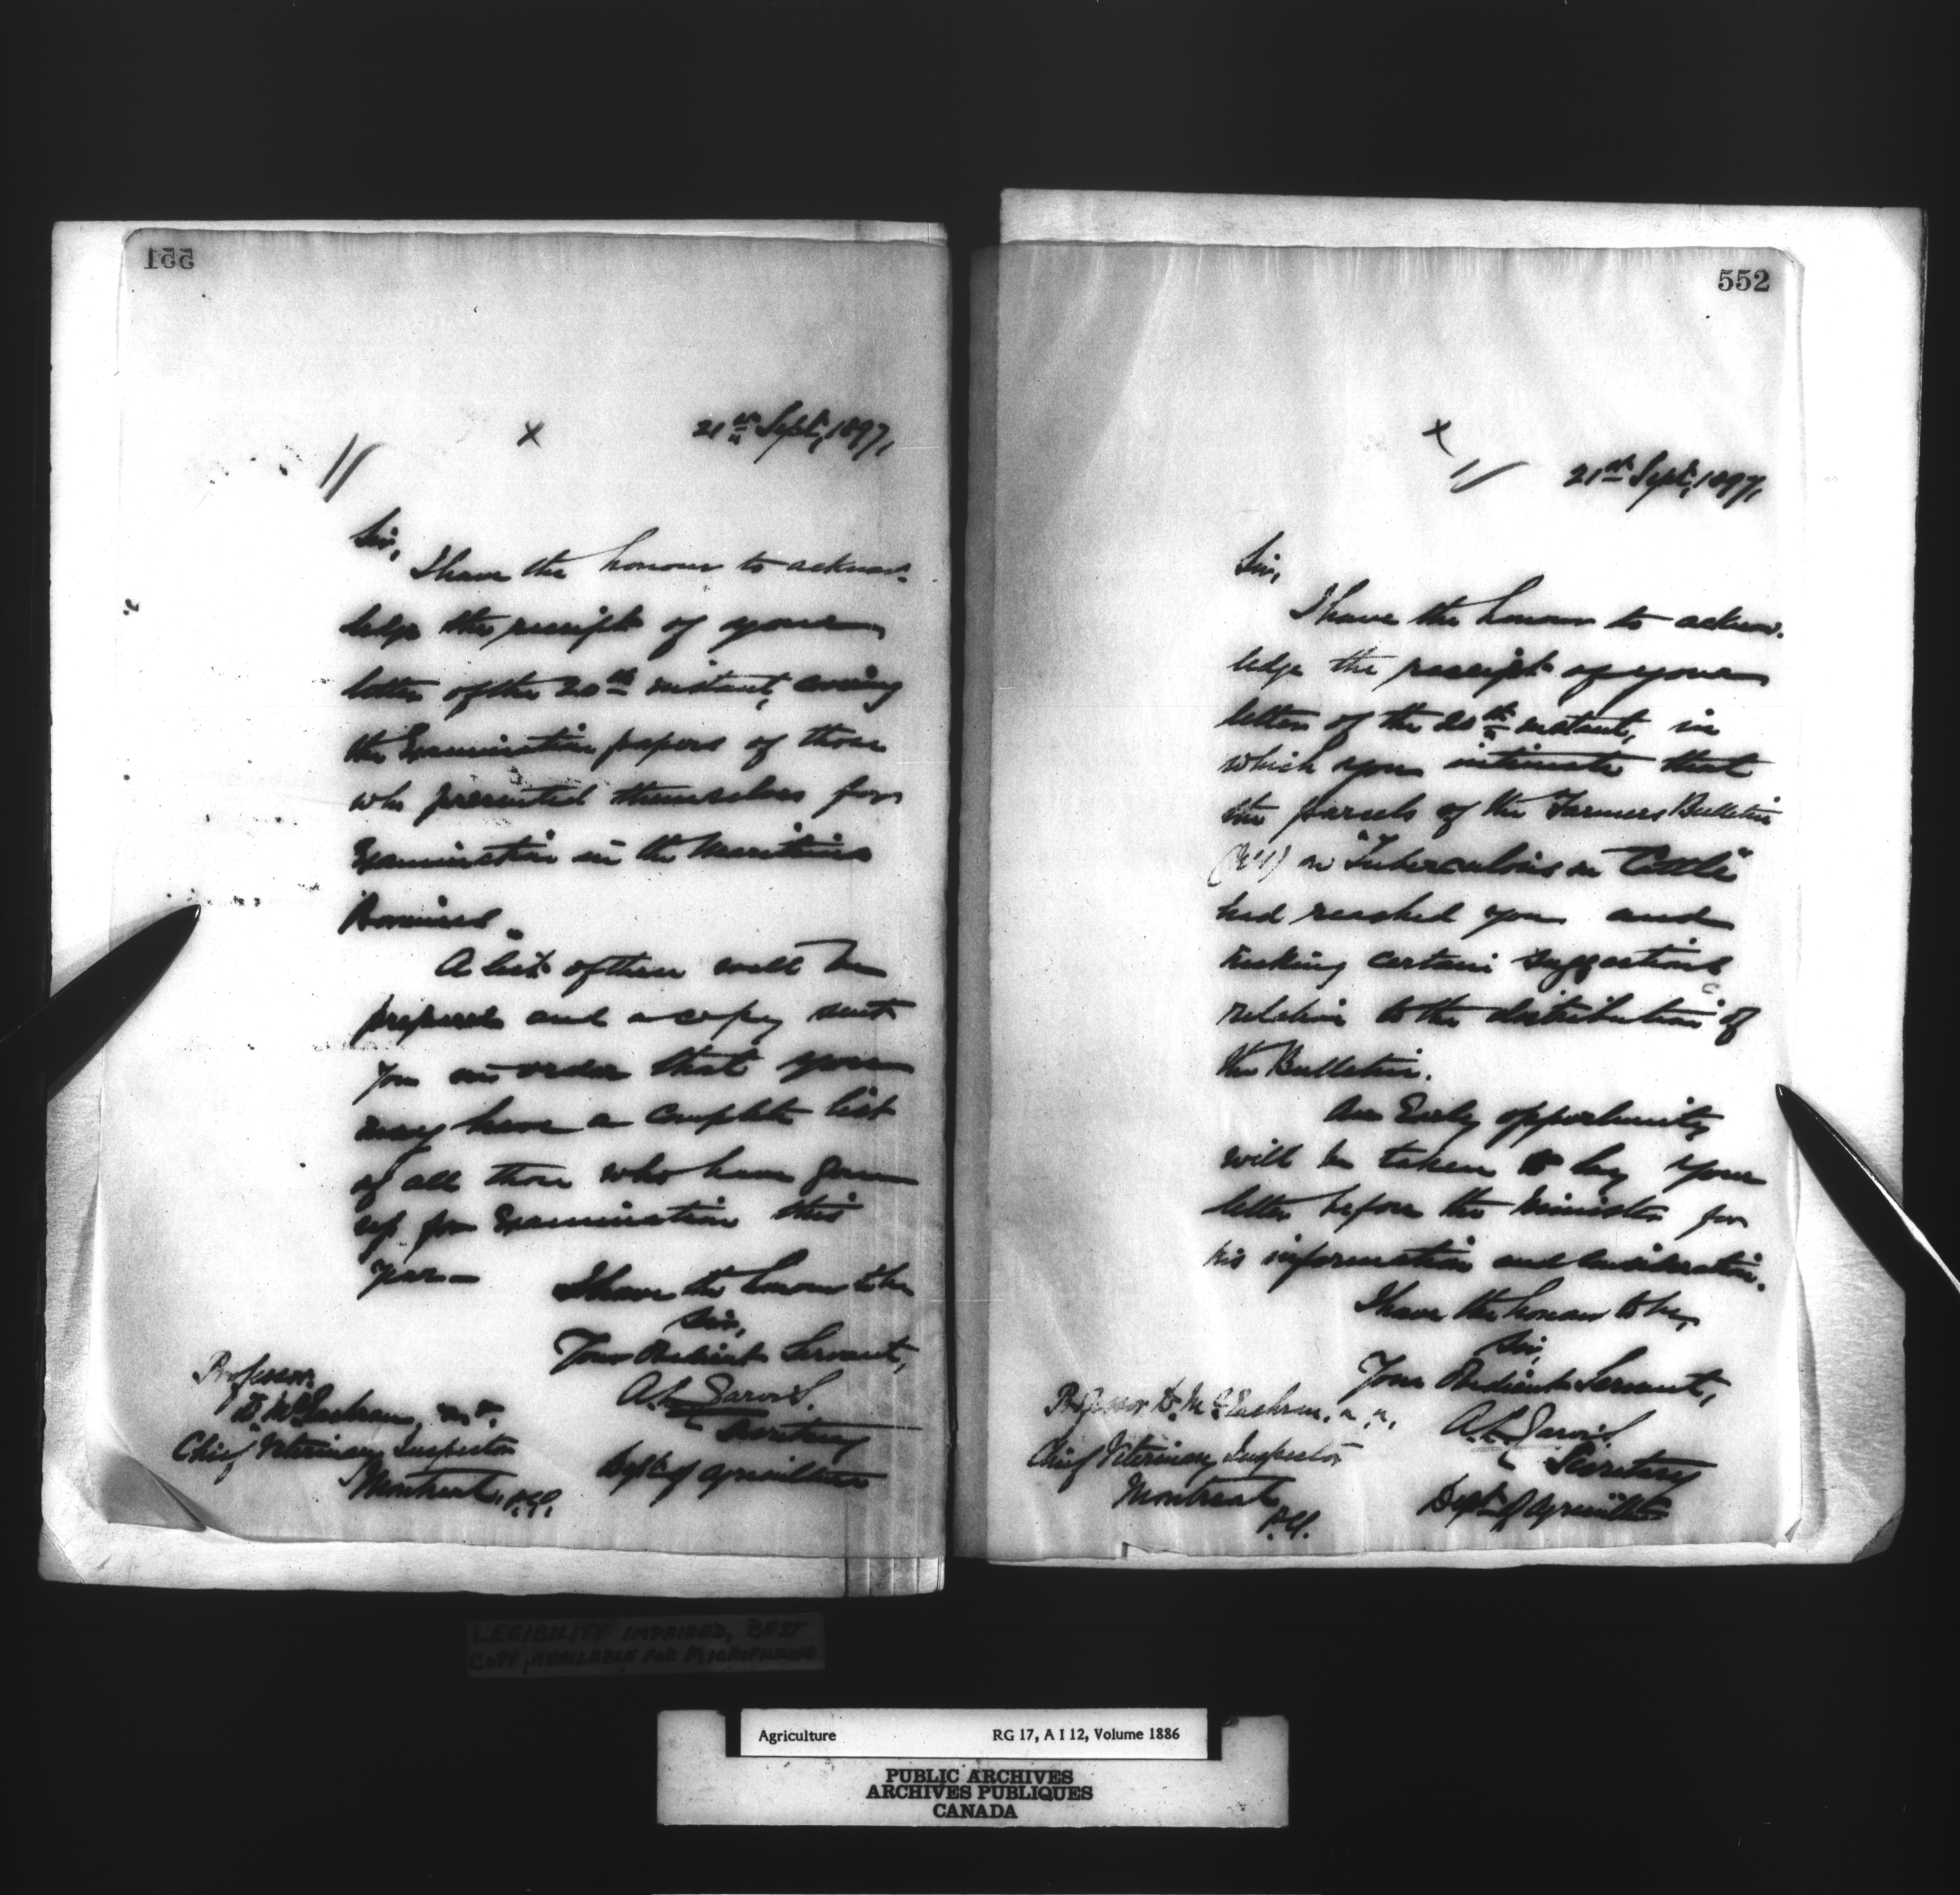 551
x
21st Sept, 1897,
Sir,
I have the honour to acknow-
ledge the receipt of your
letter of the 20th instant, covering
the Examination papers of those
who presented themselves for
Examination in the Maritime
Provinces.
A list of these will be
prepared and a copy sent
you in order that you
may have a complete list
of all those who have gone
up for Examination this
year—
I have the honour to be
Sir,
Your Obedient Servant,
A. L. Jarvis.
Secretary
Dept. of Agriculture
Professor
D. McEachran,
Chief Veterinary Inspector
Montreal, P.Q.
552
x
21st Sept, 1897,
Sir,
I have the honour to acknow-
ledge the receipt of your
letter of the 20th instant, in
which you intimate that
the parcels of the Farmers Bulletin
on "Tuberculosis in Cattle"
had reached you and
making certain suggestions
relative to the distribution of
the Bulletin.
An Early opportunity
will be taken to lay your
letter before the Minister for
his information and consideration.
I have the honour to be,
Sir,
Your Obedient Servant,
A. L. Jarvis
Secretary
Dept. of Agriculture
Professor D. McEachran,
Chief Veterinary Inspector
Montreal
P.Q.
LEGIBILITY IMPAIRED, BEST
COPY AVAILABLE FOR MICROFILMING
Agriculture RG 17, A I 12, Volume 1886
PUBLIC ARCHIVES
ARCHIVES PUBLIQUES
CANADA